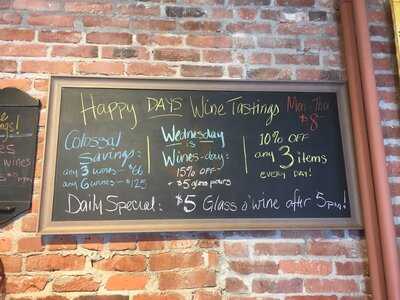 Happy DAYS Wine Tastings Mon-Thu
$8
Colossal
Savings:
any 3 wines - $66
any 6 wines - $125
Wednesday
is
Wines-day:
15% OFF
+ $5 glass pours
10% OFF
any 3 items
EVERY DAY!
Daily Special: $5 Glass o' wine after 5pm!